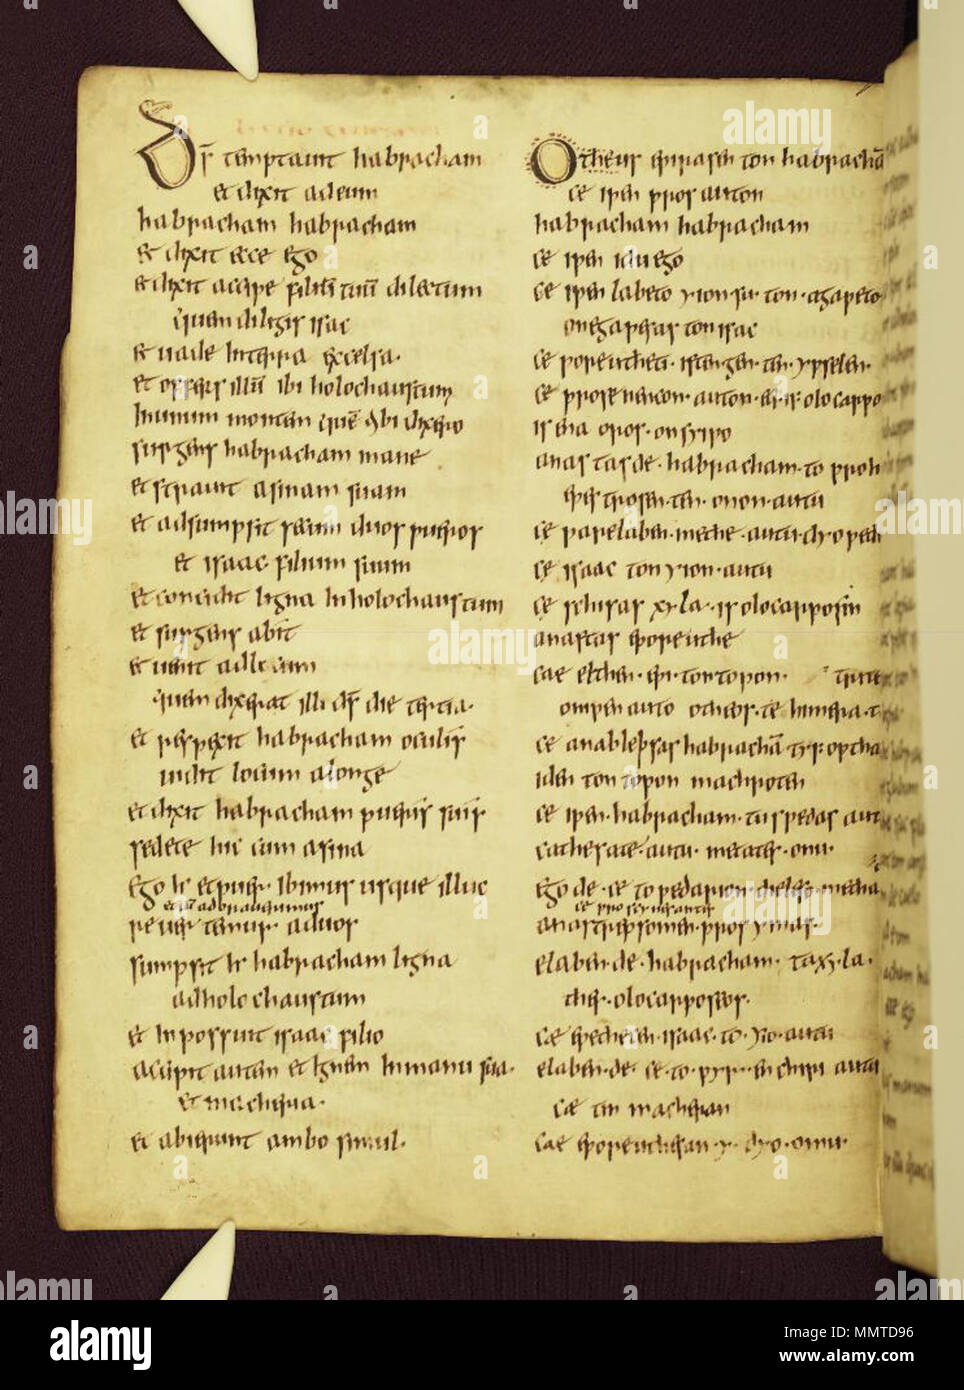 Ds temptauit habracham
et dixit ad eum
habracham habracham
et dixit ecce ego
et dixit accipe filiu tuu dilectum
quem diligis isac
et uade in terra excelsa.
et offeres illu ibi holochaustum
In unum montem que tibi dixero
surgens habracham mane
et strauit asinam suam
et adsumpsit secum duos pueros
et isaac filium suum
et concidit ligna in holochaustum
et surgens abiit
et uenit ad locum
quem dixerat illi ds die tertia.
et respexit habracham oculis
uidit locum a longe
et dixit habracham pueris suis.
sedete hic cum asina
ego et puer ibimus usque illuc
et cu adorauerimus
reuertemur ad uos
sumpsit habracham ligna
ad holochaustum
et inpossuit isaac filio
accipit autem et ignem in manu sua.
et machera.
et abierunt ambo simul.
Otheus epirasen ton habracha
ce ipen pros auton
habracham habracham
ce ipen idu ego
ce ipen labeto yion su ton agapeto
on egapesas ton isac
ce poreutheti is ten gen ten ypselen
ce prosenencon auton eis olocarpo
is ena oros on syipo
anastas de habracham to proh
epestrosen ten onon autu
ce parelaben methe autu dyo pedi
ce isaac ton yion autu
ce schisas xyla is olocarposin
anastas eporeuthe
cae elthen epi ton topon
on ipen auto otheos te himera t
ce anablepsas habracha tys opthal
iden ton topon machroten
ce ipen habracham tus pedas aut
cathesate autu meta tes onu
ego de ce to pedarion dieleusometha
ce proscynesantes
anastrepsomen pros ymas
elaben de habracham ta xyla
thes olocarposeos
ce epethecen isaac to yio autu
elaben de ce to pyr en chiri autu
ce tin macheran
cae eporeutheran y dyo omu
a alamy stock photo
alamy
Image ID: MMTD96
www.alamy.com